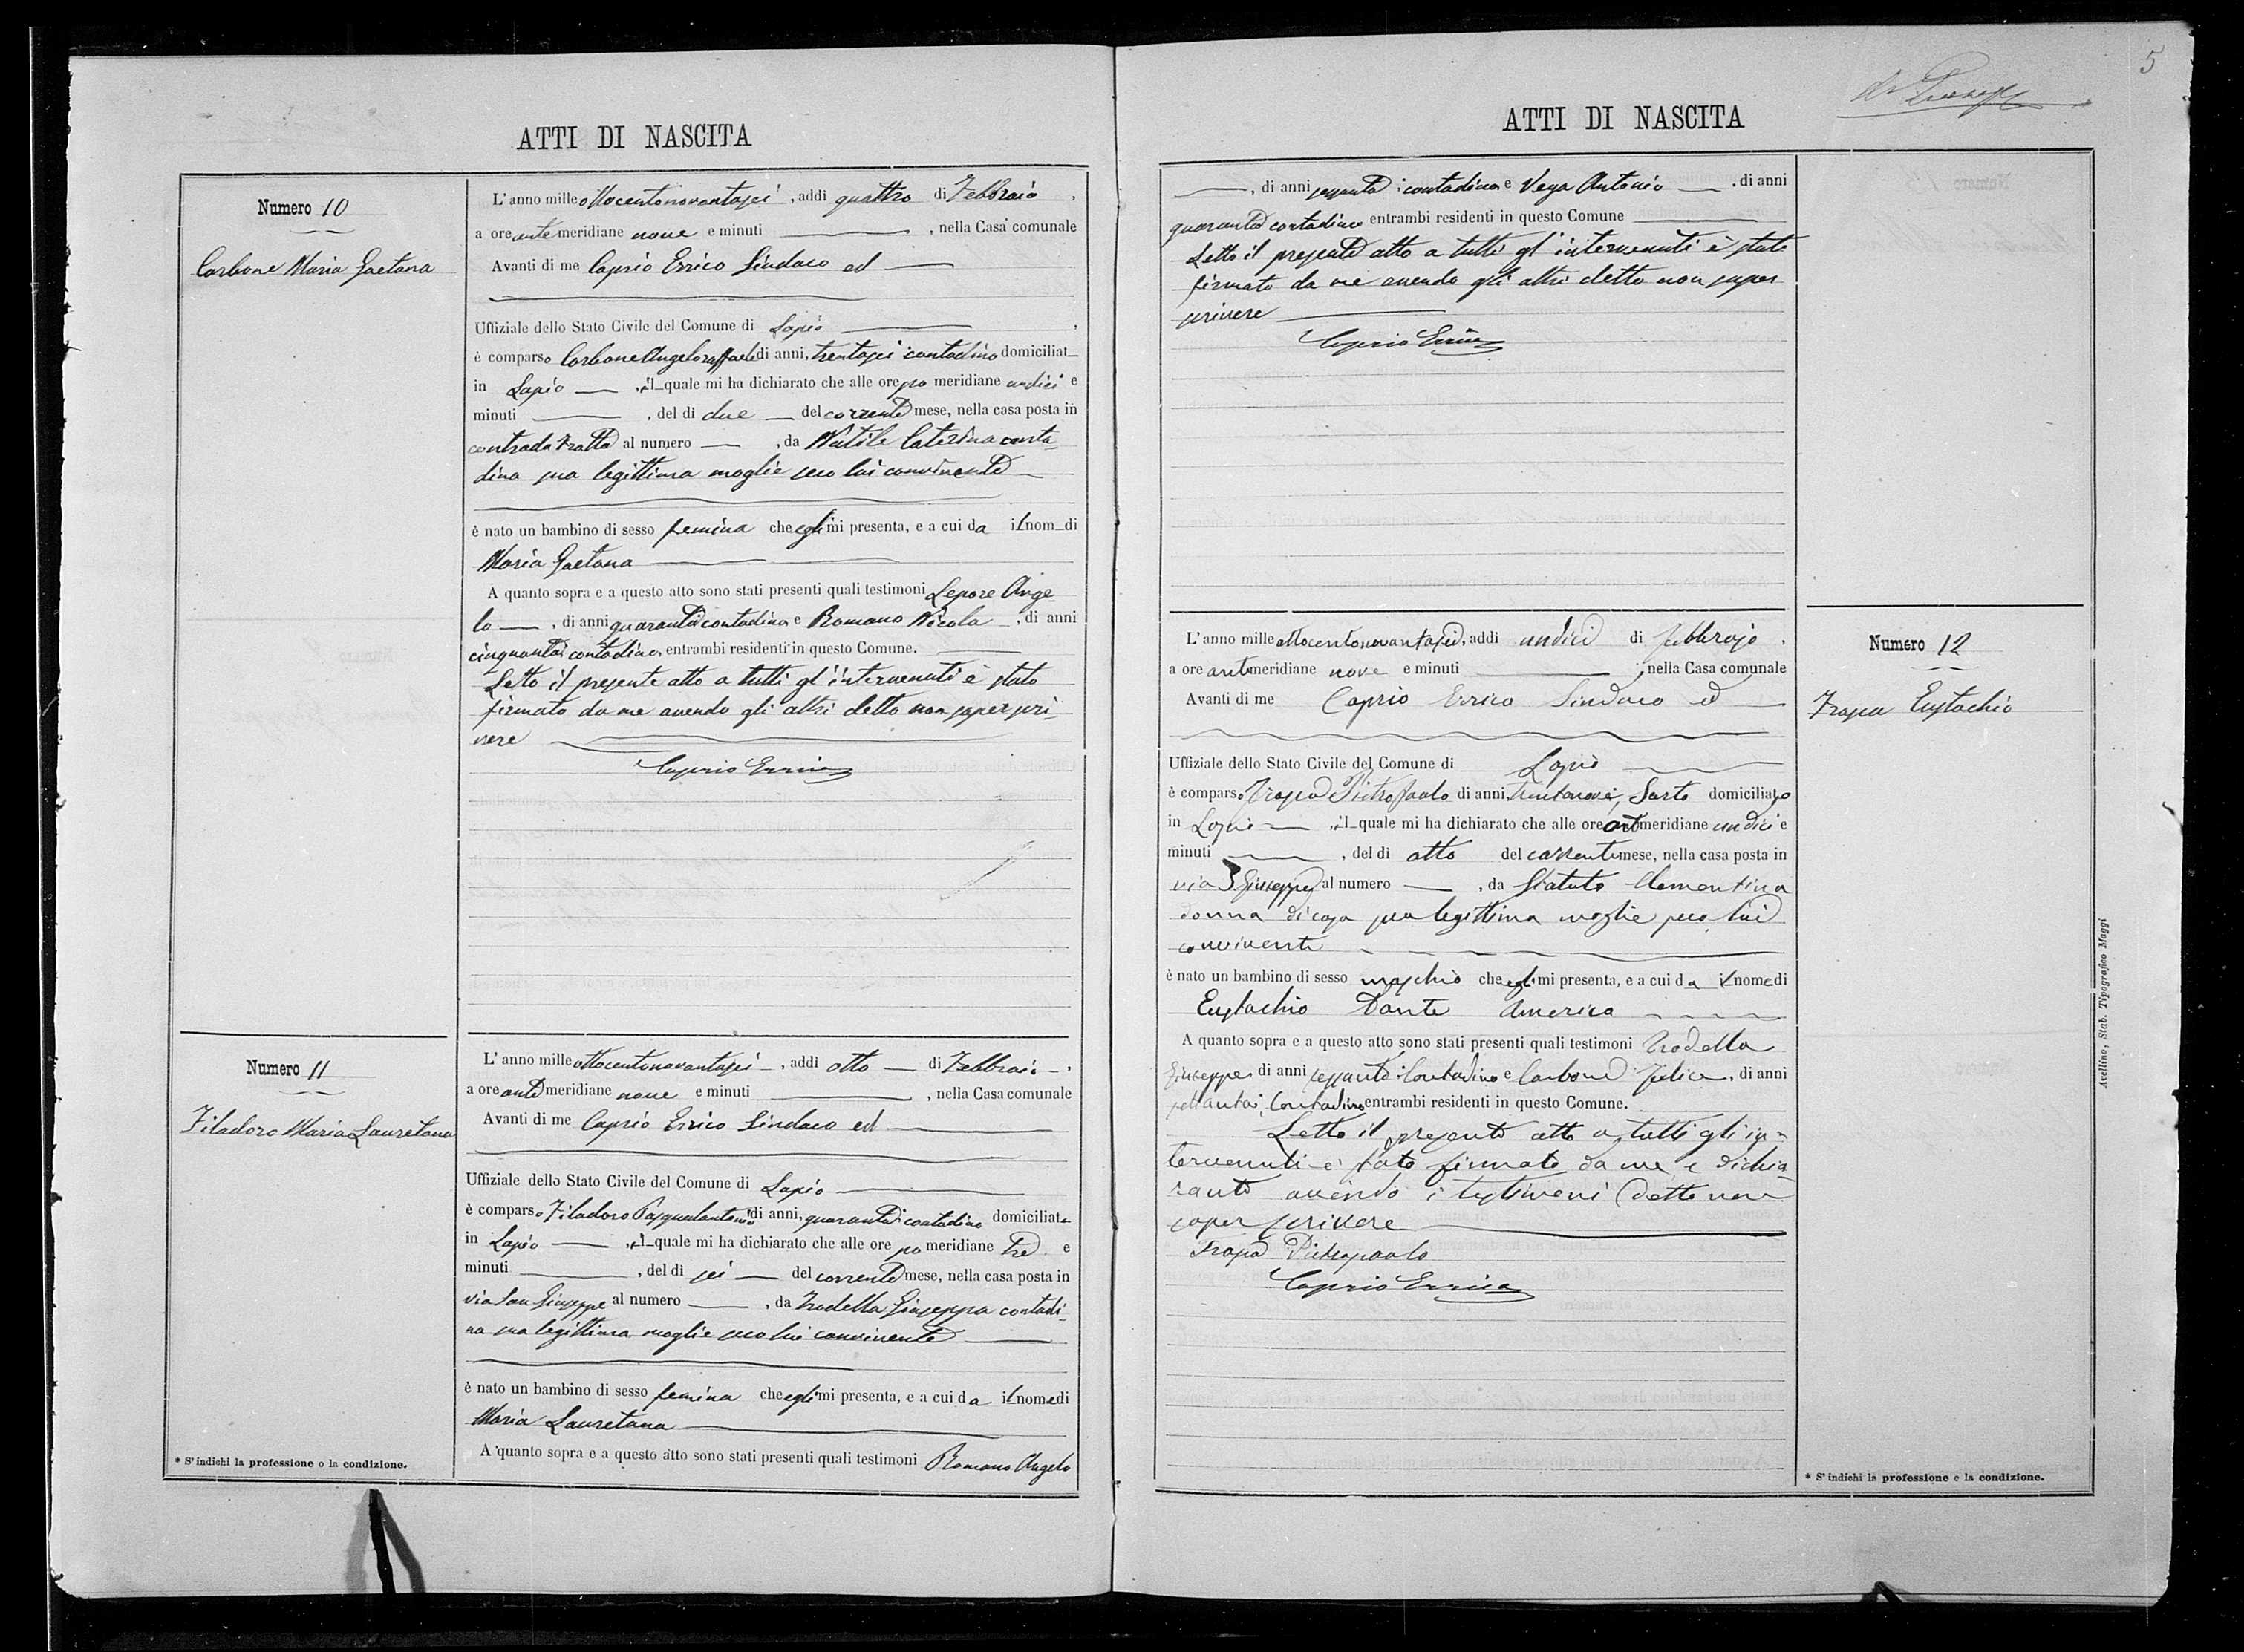 5
ATTI DI NASCITA
Numero 10
Carbone Maria Gaetana
L'anno mille ottocentonovantasei, addi quattro di Febbraio,
a ore ante meridiane nove e minuti , nella Casa comunale
Avanti di me Caprio Errico Sindaco ed
Uffiziale dello Stato Civile del Comune di Lapio ,
è comparso Carbone Angeloraffaele di anni, trentasei contadino domiciliat
in Lapio , il quale mi ha dichiarato che alle ore po meridiane undici e
minuti , del di due del corrente mese, nella casa posta in
contrada Fratte al numero , da Nutile Caterina conta-
dina sua legittima moglie seco lui convivente
è nato un bambino di sesso femina che egli mi presenta, e a cui da il nom di
Maria Gaetana
A quanto sopra e a questo atto sono stati presenti quali testimoni Lepore Ange
lo , di anni quaranta contadino e Romano Nicola , di anni
cinquanta contadino, entrambi residenti in questo Comune.
Letto il presente atto a tutti gl'intervenuti è stato
firmato da me avendo gli altri detto non saper scri-
vere
Caprio Errico
Numero 11
Filadoro Maria Lauretana
L'anno mille ottocentonovantasei , addi otto di Febbraio ,
a ore ante meridiane nove e minuti , nella Casa comunale
Avanti di me Caprio Errico Sindaco ed
Uffiziale dello Stato Civile del Comune di Lapio
è comparso Filadoro Pasqualantonio di anni, quaranta contadino domiciliato
in Lapio , il quale mi ha dichiarato che alle ore po meridiane tre e
minuti , del di sei del corrente mese, nella casa posta in
via San Giuseppe al numero , da Trodella Giuseppa contadi-
na sua legittima moglie seco lui convivente
è nato un bambino di sesso femina che egli mi presenta, e a cui da il nome di
Maria Lauretana
A quanto sopra e a questo atto sono stati presenti quali testimoni Romano Angelo
* S'indichi la professione o la condizione.
ATTI DI NASCITA
, di anni sessanta contadino e Vega Antonio , di anni
quaranta contadino entrambi residenti in questo Comune
Letto il presente atto a tutti gl'intervenuti è stato
firmato da me avendo gli altri detto non saper
scrivere
Caprio Errico
Numero 12
Frasca Eustachio
L'anno mille ottocentonovantasei, addi undici di febbrajo,
a ore antimeridiane nove e minuti , nella Casa comunale
Avanti di me Caprio Errico Sindaco ed
Uffiziale dello Stato Civile del Comune di Lapio
è comparso Pietropaolo di anni trentanove, Sarto domiciliato
in Lapio , il quale mi ha dichiarato che alle ore antimeridiane undici e
minuti , del di otto del corrente mese, nella casa posta in
via S. Giuseppe al numero , da Statuto Clementina
donna di casa sua legittima moglie seco lui
convivente
è nato un bambino di sesso maschio che egli mi presenta, e a cui da il nome di
Eustachio Dante America
A quanto sopra e a questo atto sono stati presenti quali testimoni Trodella
Giuseppe di anni sessanta contadino e Carbone Felice, di anni
settanta, Contadino entrambi residenti in questo Comune.
Letto il presente atto a tutti gli in-
tervenuti è stato firmato da me e dichia
rante avendo i testimoni detto non
saper scrivere
Pietropaolo
Caprio Errico
* S'indichi la professione o la condizione.
Avellino, Stab. Tipografico Maggi